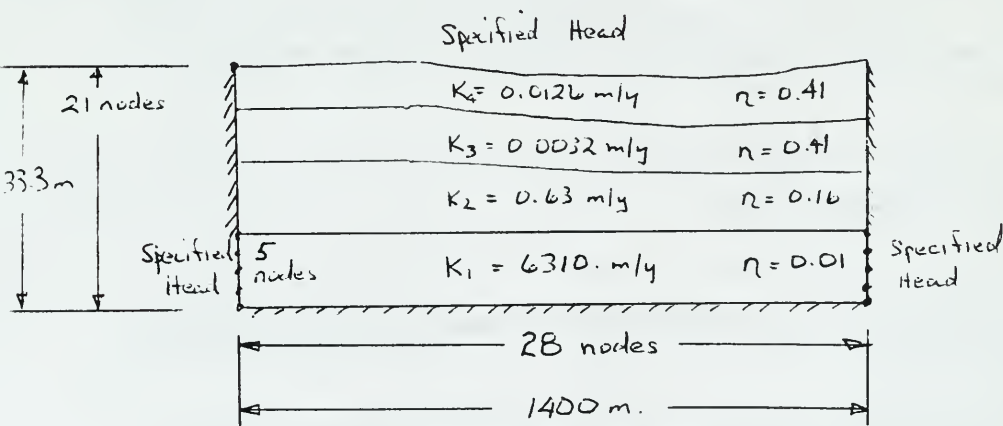 Specified Head
K4 = 0.0126 m/y n = 0.41
21 nodes
K3 = 0.0032 m/y n = 0.41
33.3 m
K2 = 0.63 m/y n = 0.16
Specified Head
5 nodes
K1 = 6310. m/y n = 0.01
Specified Head
28 nodes
1400 m.